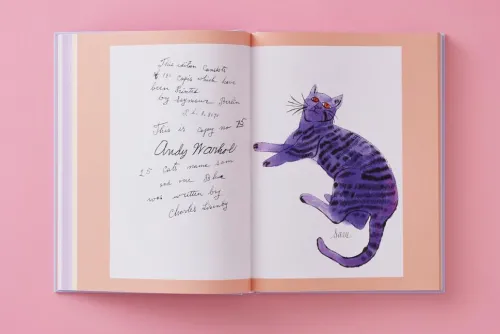 This edition Consists
of 190 Copies which have
been Printed
by Seymour Berlin
This is copy no 75
Andy Warhol
25 Cats name sam
and one Blue
was written by
Charles Lisanby
Sam